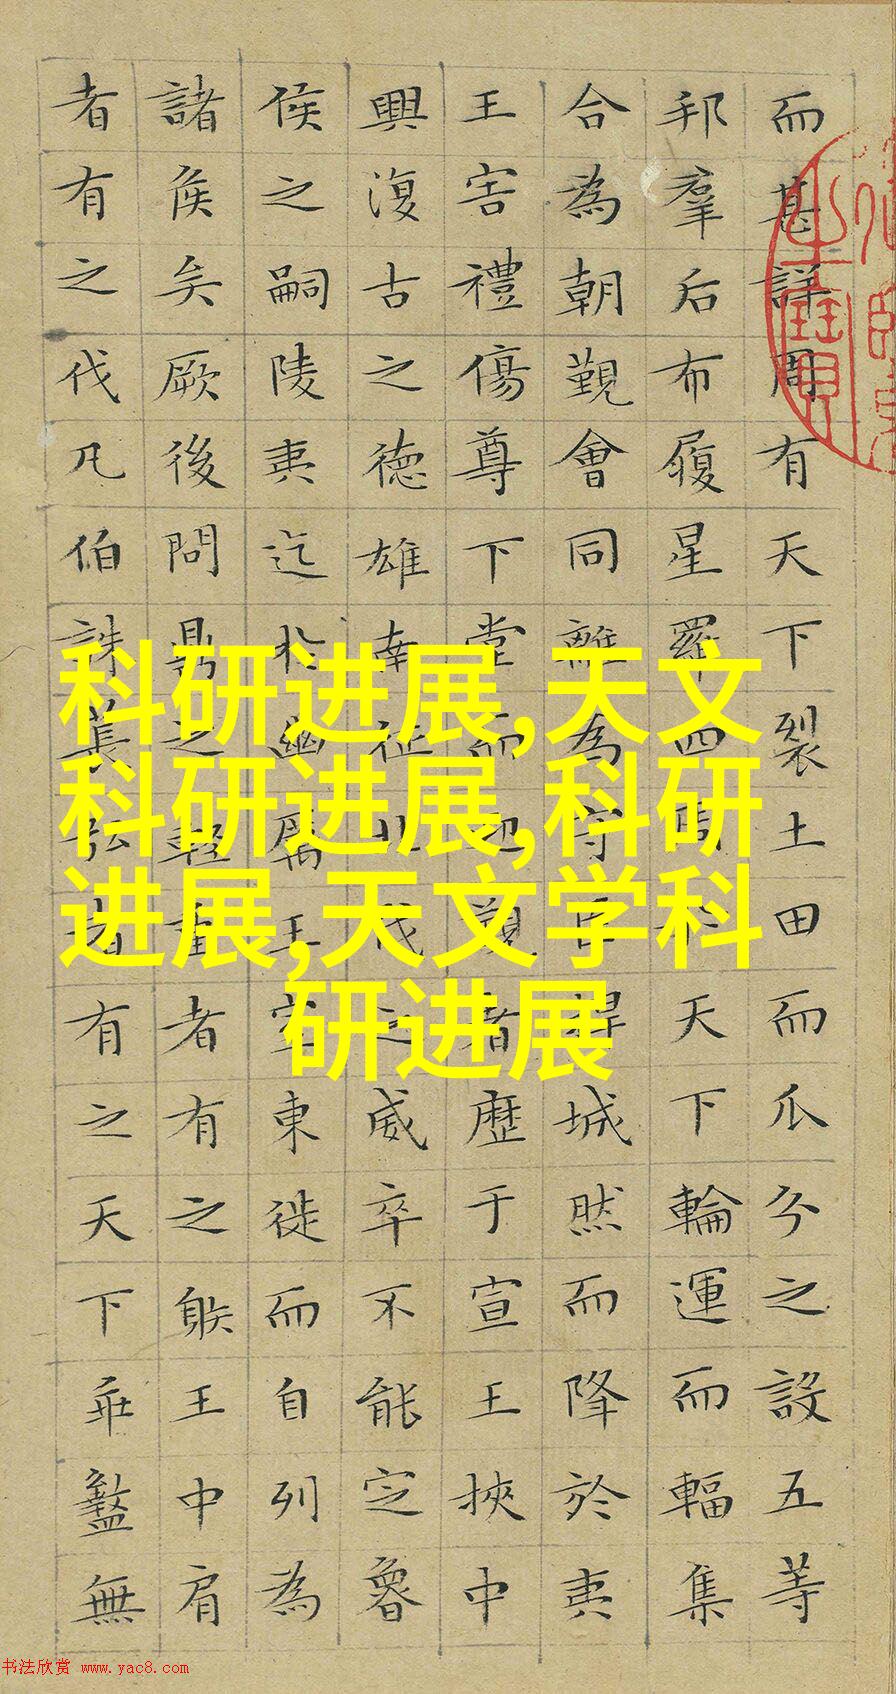 而甚詳周有天下裂土田而瓜分之設五等
邦羣后布履星羅四周于天下輪運而輻集
合為朝覲會同離為守臣捍城然而降於夷
王害禮傷尊下堂而迎覲者歷于宣王挾中
興復古之德雄南征北伐之威卒不能定魯
侯之嗣陵夷迄於幽厲王室東徙而自列為
諸侯矣厥後問鼎之輕重者有之射王中肩
者有之伐凡伯誅萇弘者有之天下乖盭無
科研进展,天文
科研进展,科研
进展,天文学科
研进展
书法欣赏 www.yac8.com